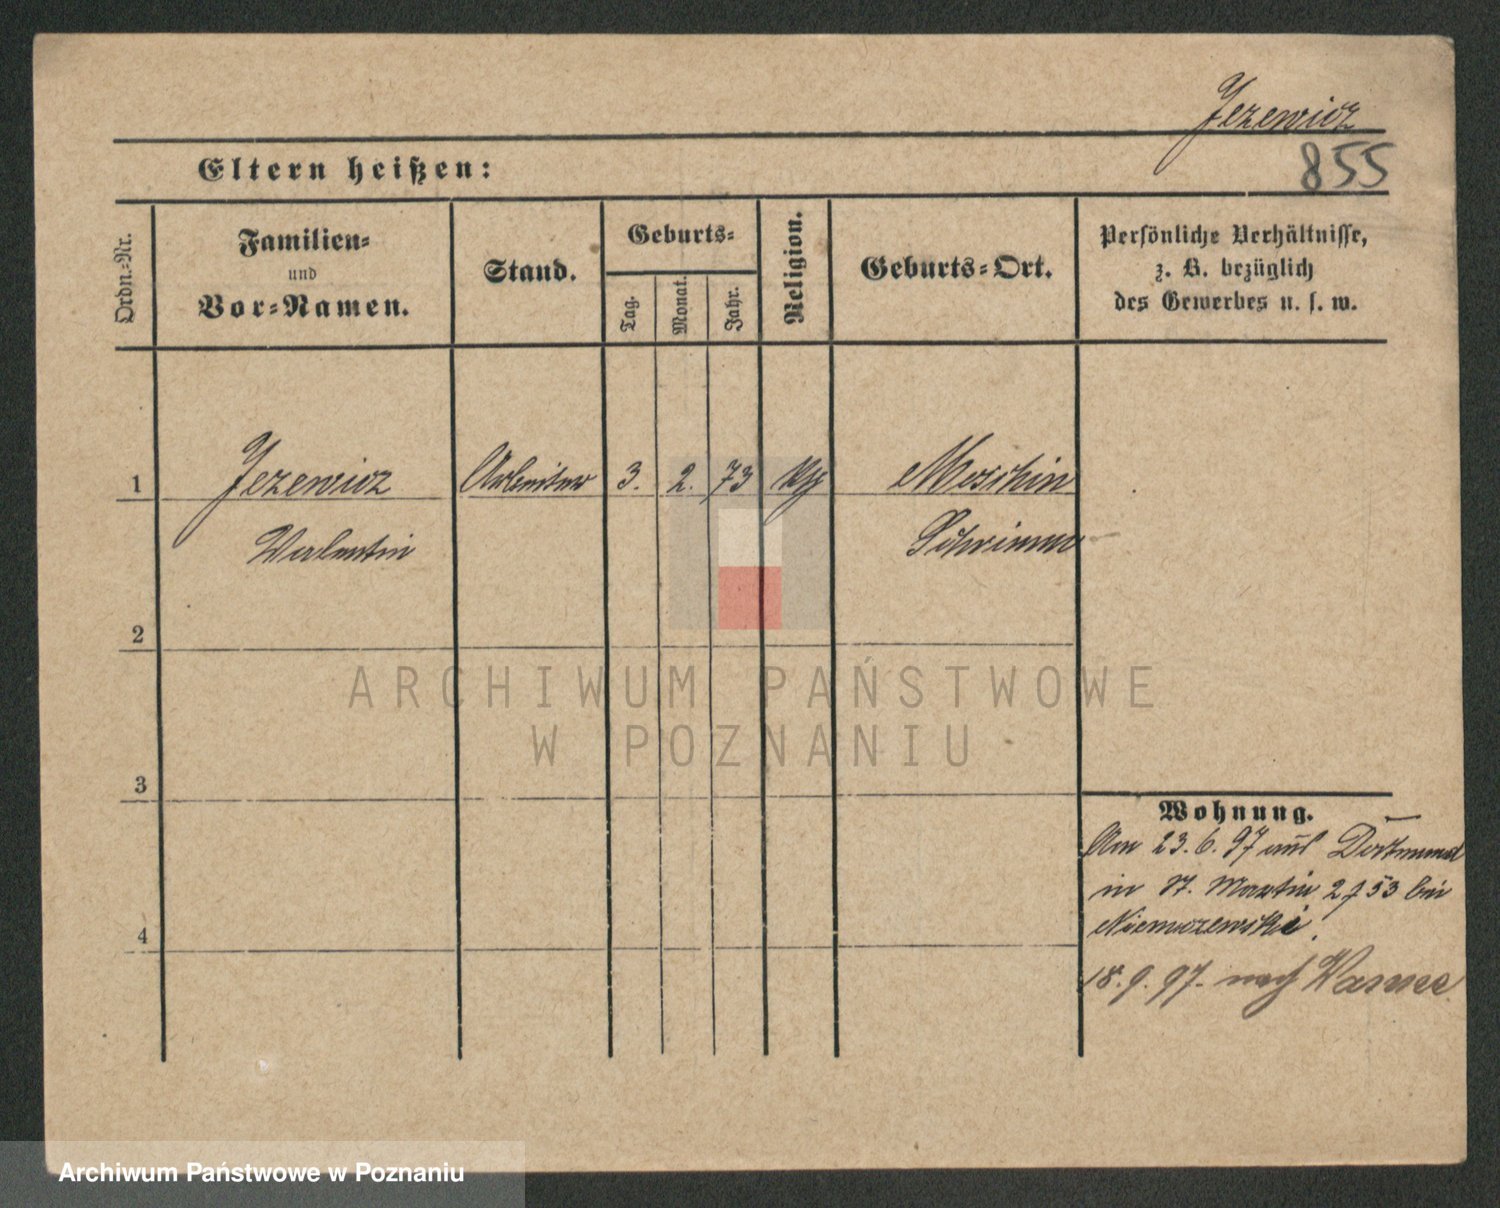 Jezewicz
855
Eltern heißen:
Ordn.-Nr.
Familien-
und
Vor-Namen.
Stand.
Geburts-
Tag.
Monat.
Jahr.
Religion.
Geburts-Ort.
Persönliche Verhältnisse,
z. B. bezüglich
des Gewerbes u. s. w.
1 Jezewicz Arbeiter 3. 2. 73 Moschin
Valentin Schrimm
2
ARCHIWUM PAŃSTWOWE
W POZNANIU
3
Wohnung.
Am 23. 6. 97 aus Dortmund
in St. Martin 53 bei
4
18. 9. 97. nach Wanne
Archiwum Państwowe w Poznaniu